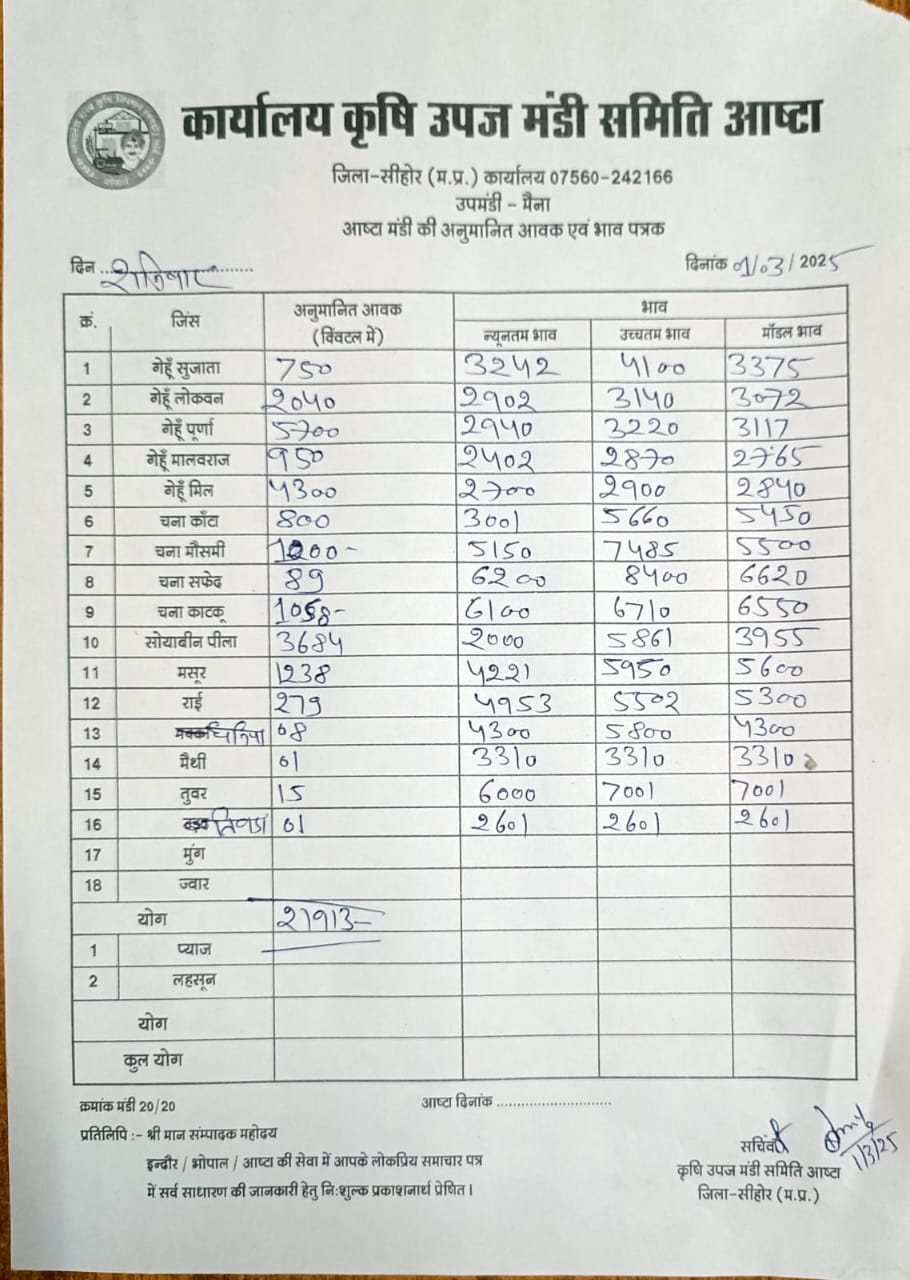 कार्यालय कृषि उपज मंडी समिति आष्टा
जिला-सीहोर (म.प्र.) कार्यालय 07560-242166
उपमंडी - मैना
आष्टा मंडी की अनुमानित आवक एवं भाव पत्रक
दिन ..शनिवार......... दिनांक 01/03/2025
क्रं. जिंस अनुमानित आवक (क्विंटल में) भाव
न्यूनतम भाव उच्चतम भाव मॉडल भाव
1 गेहूँ सुजाता 750 3242 4100 3375
2 गेहूँ लोकवन 2040 2902 3140 3072
3 गेहूँ पूर्णा 5700 2940 3220 3117
4 गेहूँ मालवराज 950 2402 2870 2765
5 गेहूँ मिल 4300 2700 2900 2840
6 चना काँटा 800 3001 5660 5450
7 चना मौसमी 1200- 5150 7485 5500
8 चना सफेद 89 6200 8400 6620
9 चना काटकू 1058- 6100 6710 6550
10 सोयाबीन पीला 3684 2000 5861 3955
11 मसूर 1238 4221 5950 5600
12 राई 279 4953 5502 5300
13 धनिया 08 4300 5800 4300
14 मैथी 01 3310 3310 3310
15 तुवर 15 6000 7001 7001
16 तिवडा 01 2601 2601 2601
17 मुंग
18 ज्वार
योग 21913-
1 प्याज
2 लहसून
योग
कुल योग
क्रमांक मंडी 20/20 आष्टा दिनांक ............................
प्रतिलिपि :- श्री मान सम्पादक महोदय
इन्दौर / भोपाल / आष्टा की सेवा में आपके लोकप्रिय समाचार पत्र
में सर्व साधारण की जानकारी हेतु नि:शुल्क प्रकाशनार्थ प्रेषित।
सचिव
1/3/25
कृषि उपज मंडी समिति आष्टा
जिला-सीहोर (म.प्र.)